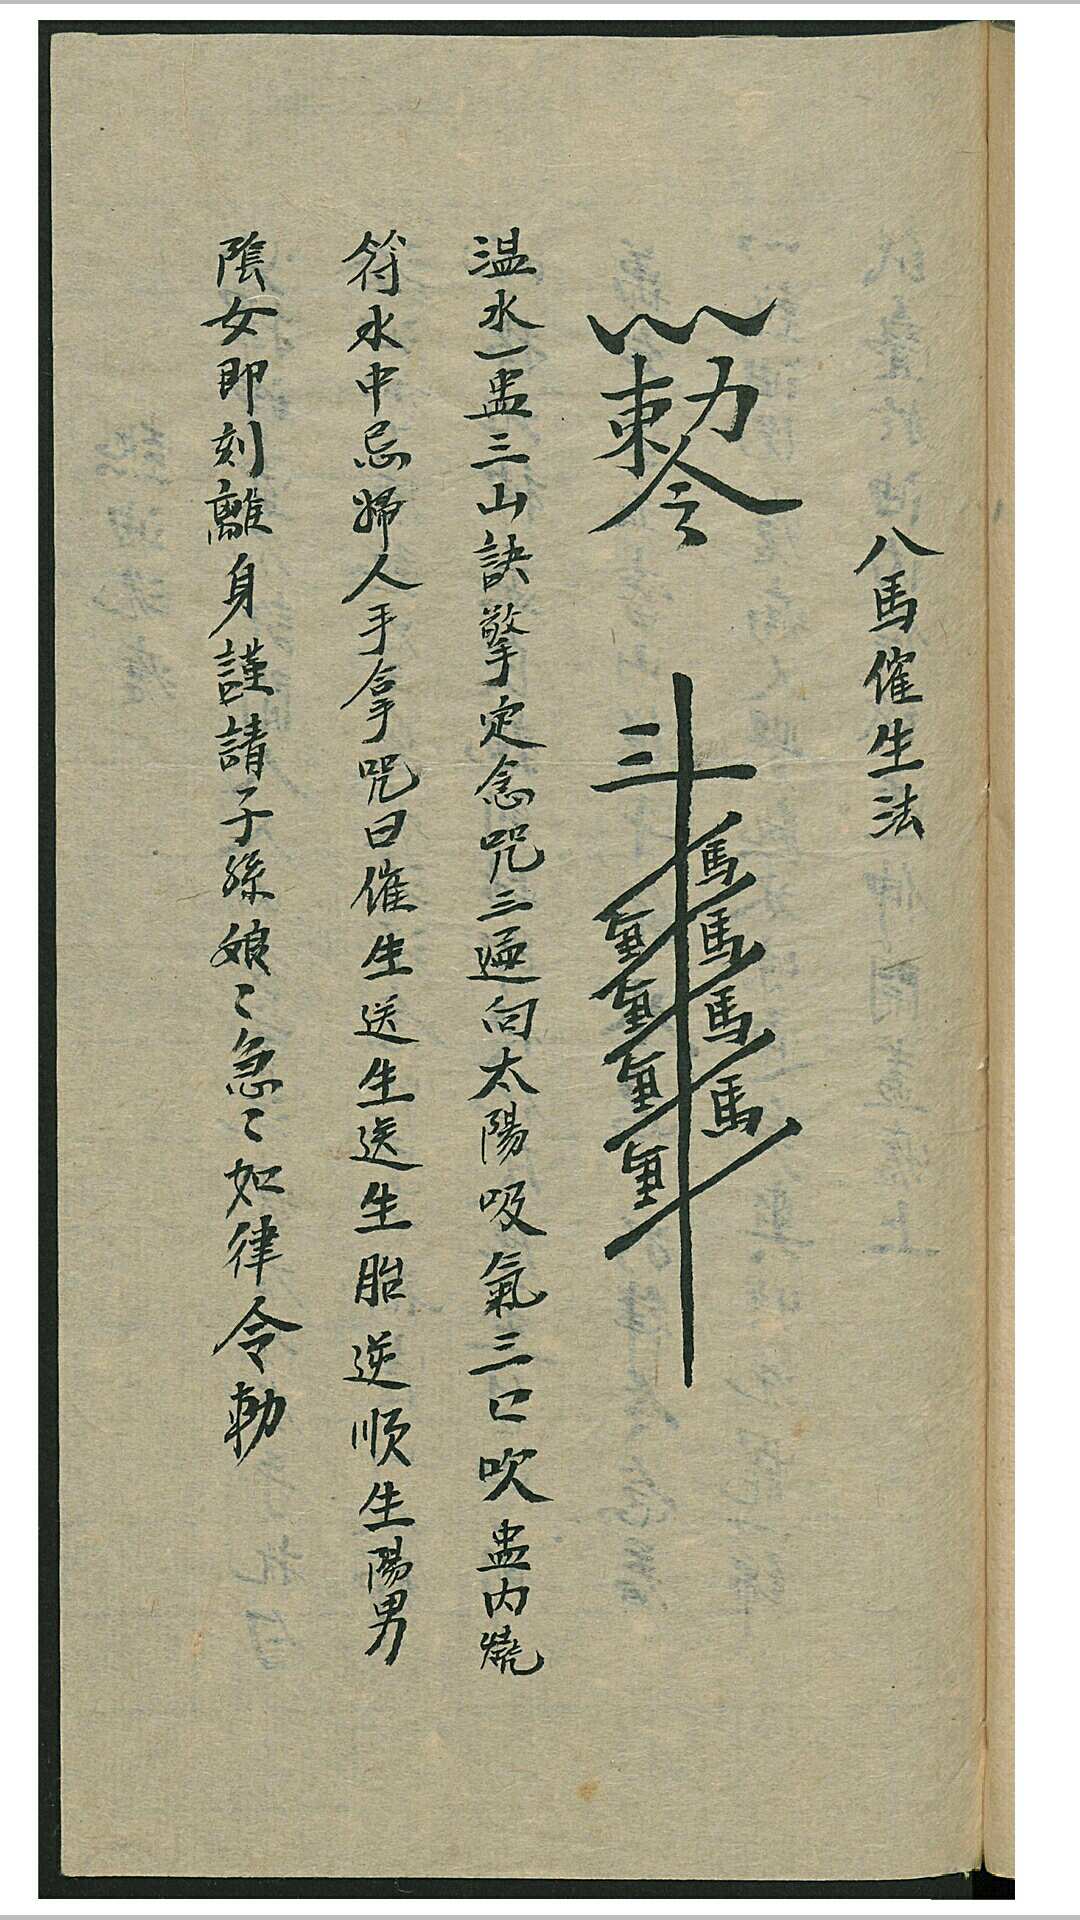 八馬催生法
勅令
三斗
馬馬馬馬
溫水一盅三山訣擎定念咒三遍向太陽吸氣三口吹盅內燒
符水中忌婦人手拿咒曰催生送生送生胎逆順生陽男
陰女即刻離身謹請子孫娘〻急〻如律令勅